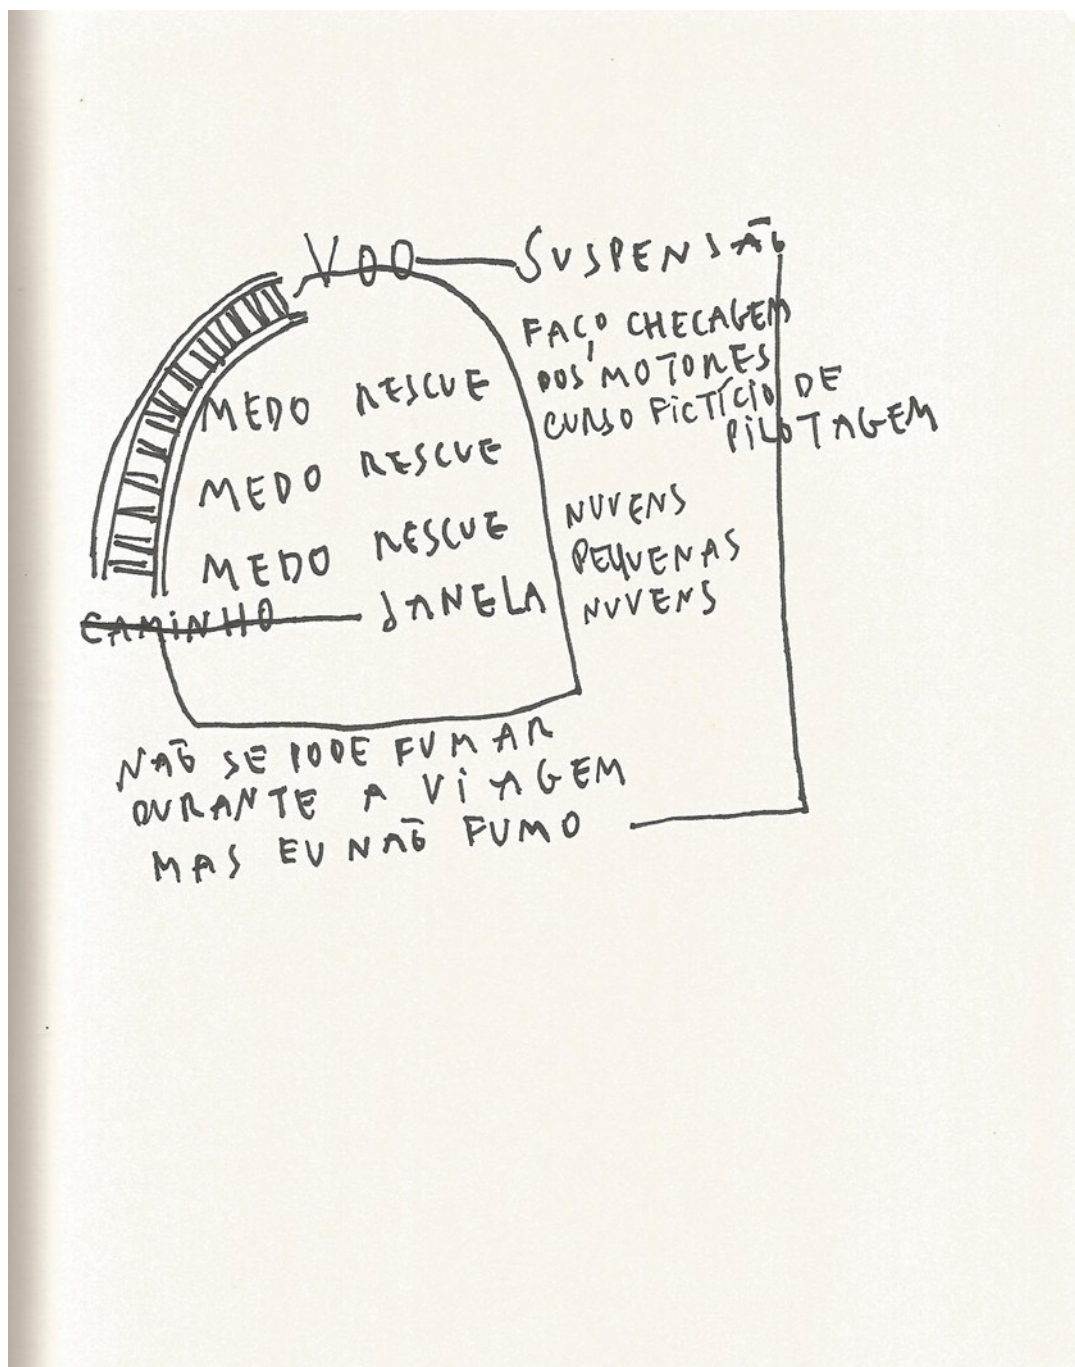 VOO — SUSPENSÃO
FAÇO CHECAGEM
DOS MOTORES
CURSO FICTÍCIO DE
PILOTAGEM
MEDO RESCUE
MEDO RESCUE
MEDO RESCUE
CAMINHO — JANELA
NUVENS
PEQUENAS
NUVENS
NÃO SE PODE FUMAR
DURANTE A VIAGEM
MAS EU NÃO FUMO